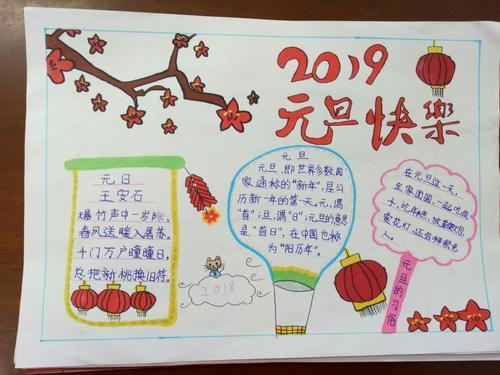 2019
元旦快樂
元日
王安石
爆竹声中一岁除,
春风送暖入屠苏。
千门万户曈曈日,
总把新桃换旧符。
元旦
元旦,即世界多数国
家通称的“新年”,是公
历新一年的第一天。元,谓
“首”;旦,谓“日”;元旦的意思
是“首日”,在中国也称
为“阳历年”。
在元旦这一天,
全家团圆,一起吃饺
人。
元旦的习俗
2018